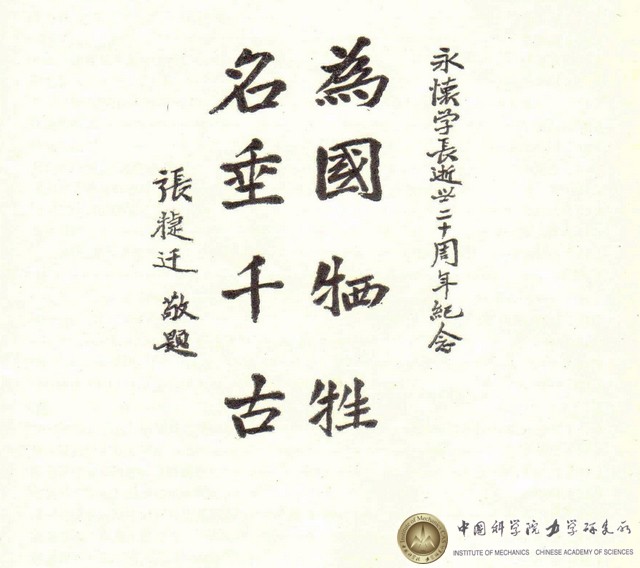 永懷学長逝世二十周年紀念
為國牺牲
名垂千古
張捷迁 敬題
中国科学院力学研究所
INSTITUTE OF MECHANICS CHINESE ACADEMY OF SCIENCES